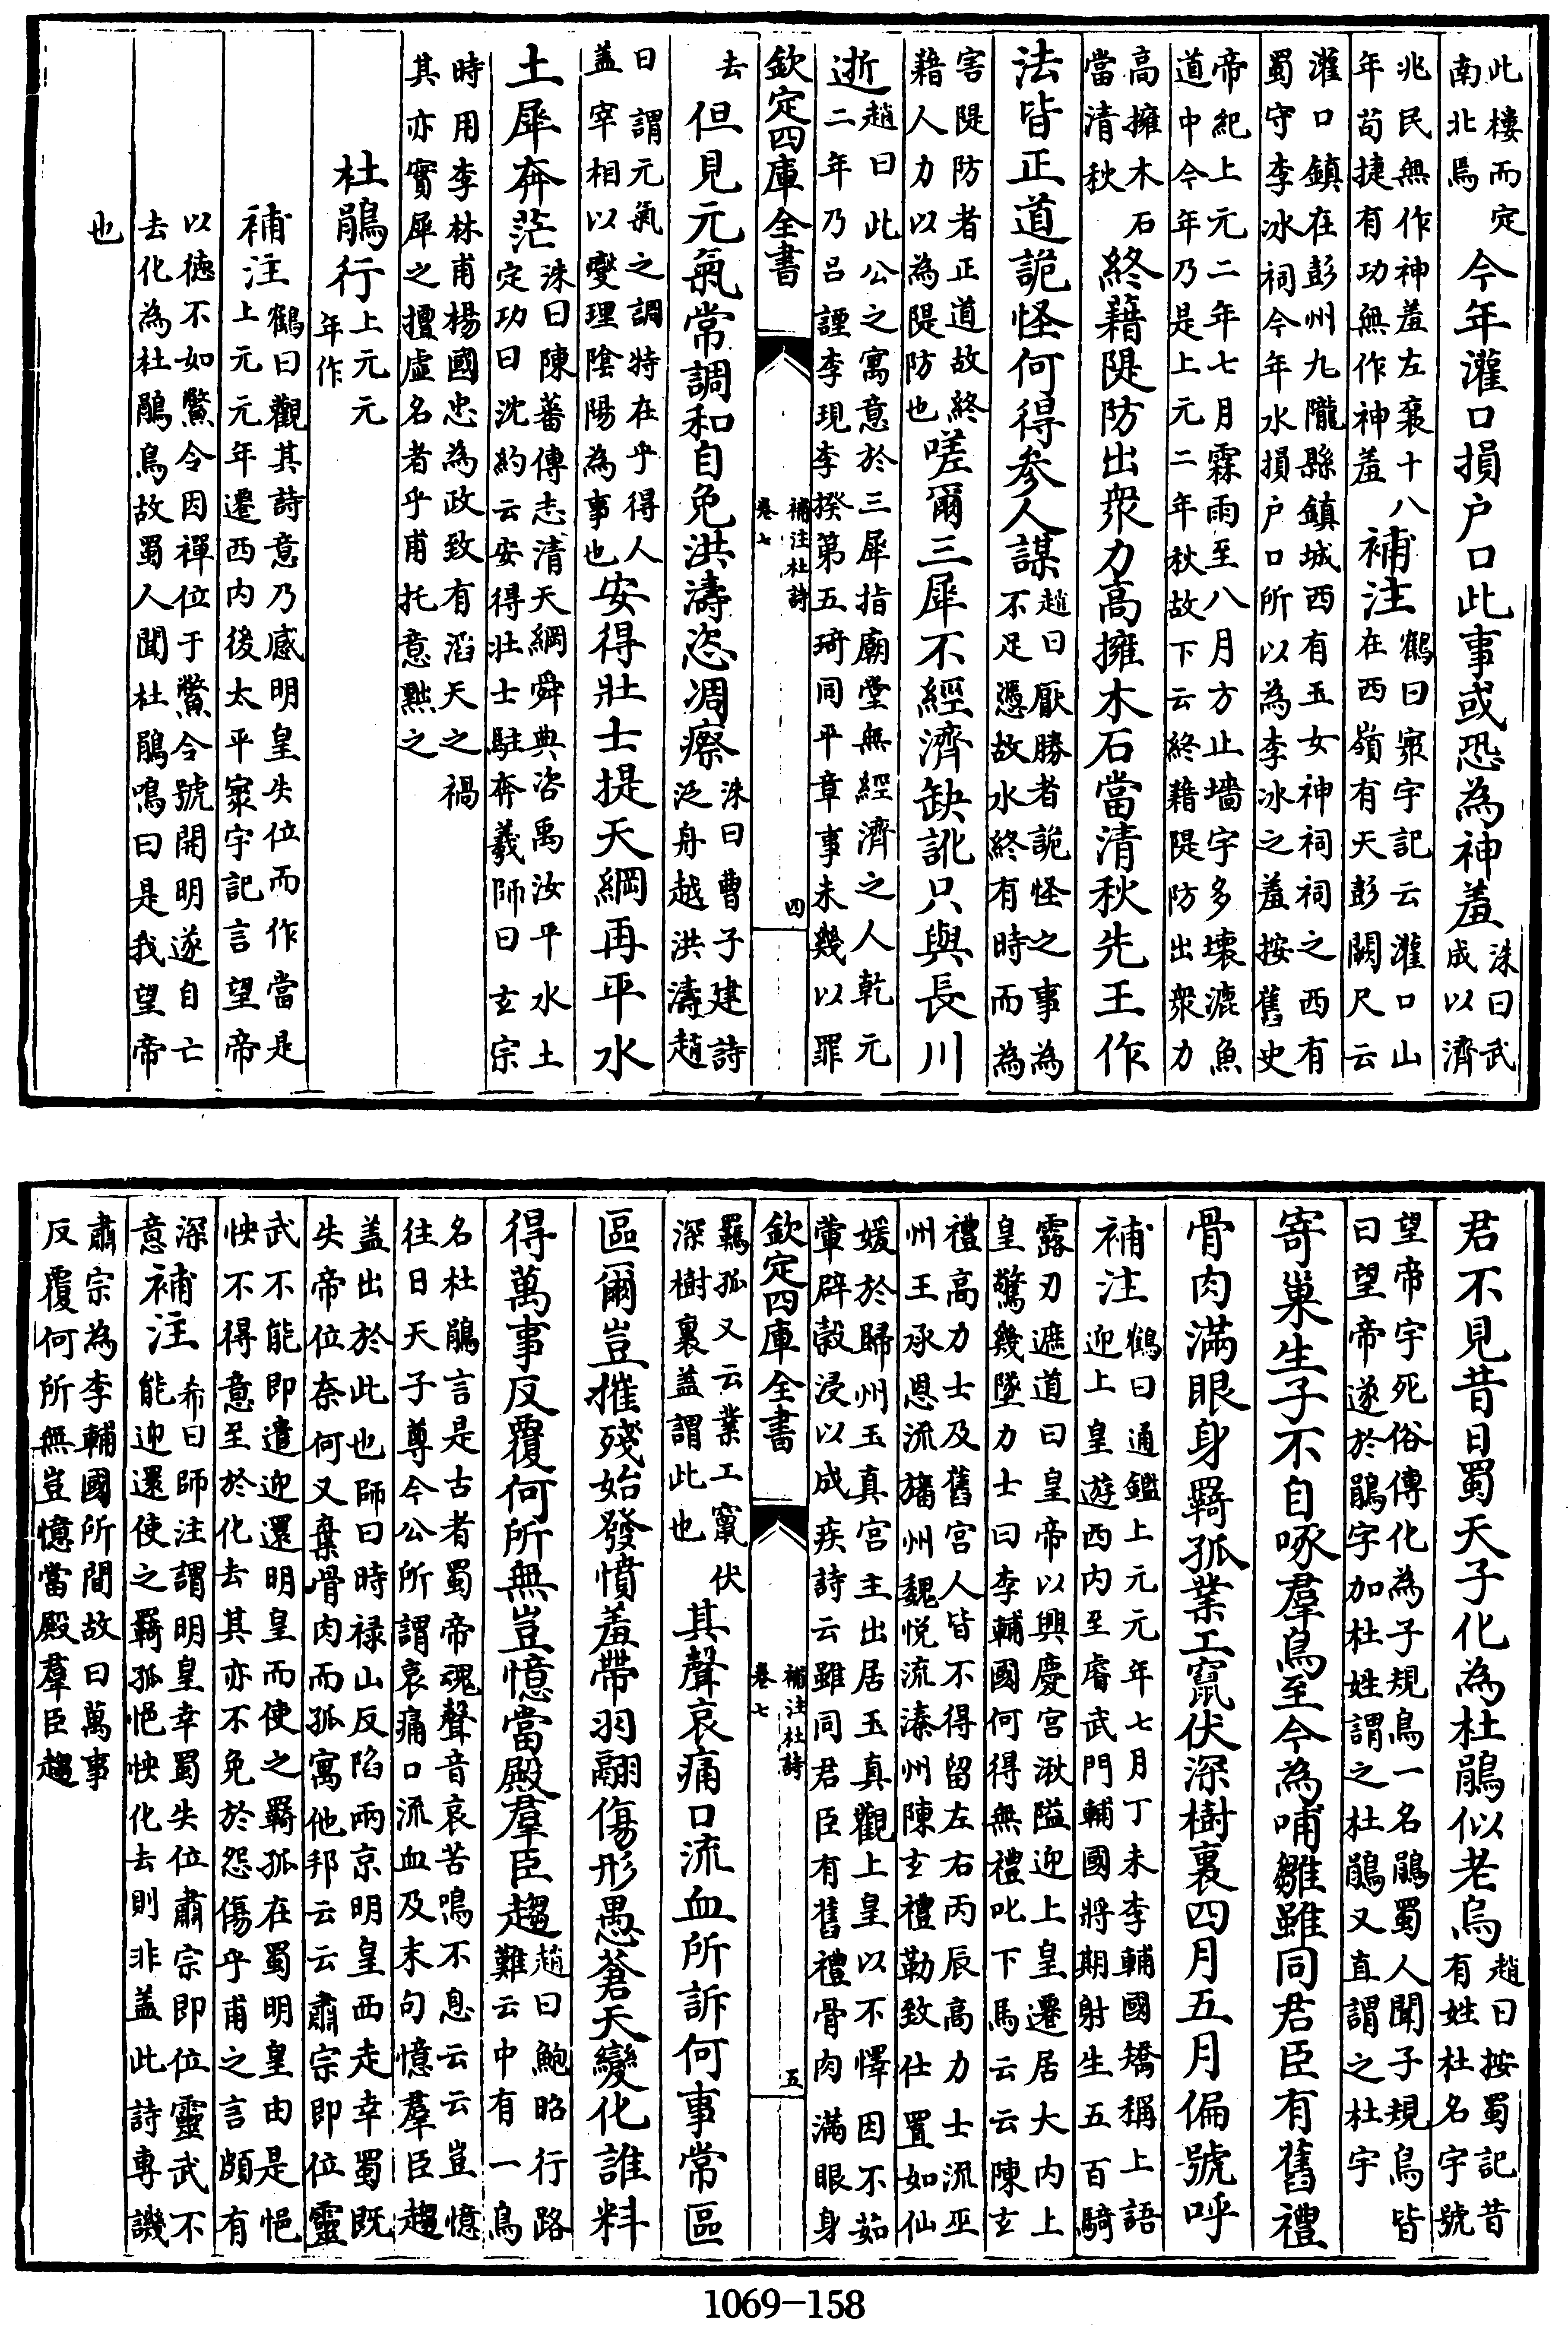 此樓而定
南北焉
今年灌口損户口此事或恐為神羞
洙曰武
成以濟
兆民無作神羞左襄十八
年苟捷有功無作神羞
補注
鶴曰寰宇記云灌口山
在西嶺有天彭闕尺云
灌口鎮在彭州九隴縣鎮城西有玉女神祠祠之西有
蜀守李冰祠今年水損户口所以為李冰之羞按舊史
帝紀上元二年七月霖雨至八月方止墻宇多壞漉魚
道中今年乃是上元二年秋故下云終藉隄防出衆力
高擁木石
當清秋
終藉隄防出衆力高擁木石當清秋先王作
法皆正道詭怪何得參人謀
趙曰厭勝者詭怪之事為
不足憑故水終有時而為
害隄防者正道故終
藉人力以為隄防也
嗟爾三犀不經濟缺訛只與長川
逝
趙曰此公之寓意於三犀指廟堂無經濟之人乾元
二年乃吕諲李現李揆第五琦同平章事未幾以罪
欽定四庫全書
補注杜詩
卷七
四
去
但見元氣常調和自免洪濤恣凋瘵
洙曰曹子建詩
泛舟越洪濤趙
曰謂元氣之調特在乎得人
盖宰相以燮理陰陽為事也
安得壯士提天綱再平水
土犀奔茫
洙曰陳蕃傳志清天綱舜典咨禹汝平水土
定功曰沈約云安得壯士駐奔羲師曰玄宗
時用李林甫楊國忠為政致有滔天之禍
其亦實犀之擅虚名者乎甫托意㸃之
杜鵑行
上元元
年作
補注
鶴曰觀其詩意乃感明皇失位而作當是
上元元年遷西内後太平寰宇記言望帝
以德不如鱉令因禪位于鱉令號開明遂自亡
去化為杜鵑鳥故蜀人聞杜鵑鳴曰是我望帝
也
君不見昔日蜀天子化為杜鵑似老烏
趙曰按蜀記昔
有姓杜名宇號
望帝宇死俗傳化為子規鳥一名鵑蜀人聞子規鳥皆
曰望帝遂於鵑字加杜姓謂之杜鵑又直謂之杜宇
寄巢生子不自啄羣鳥至今為哺雛雖同君臣有舊禮
骨肉滿眼身羇孤業工竄伏深樹裏四月五月偏號呼
補注
鶴曰通鑑上元元年七月丁未李輔國矯稱上語
迎上皇遊西内至睿武門輔國將期射生五百騎
露刃遮道曰皇帝以興慶宫湫隘迎上皇遷居大内上
皇驚幾墜力士曰李輔國何得無禮叱下馬云云陳玄
禮高力士及舊宫人皆不得留左右丙辰高力士流巫
州王承恩流播州魏悦流溱州陳玄禮勒致仕置如仙
媛於歸州玉真宫主出居玉真觀上皇以不懌因不茹
葷辟穀浸以成疾詩云雖同君臣有舊禮骨肉滿眼身
欽定四庫全書
補注杜詩
卷七
五
羇孤又云業工竄伏
深樹裏盖謂此也
其聲哀痛口流血所訴何事常區
區爾豈摧殘始發憤羞帶羽翮傷形愚蒼天變化誰料
得萬事反覆何所無豈憶當殿羣臣趨
趙曰鮑昭行路
難云中有一鳥
名杜鵑言是古者蜀帝魂聲音哀苦鳴不息云云豈憶
往日天子尊今公所謂哀痛口流血及末句憶羣臣趨
盖出於此也師曰時禄山反陷兩京明皇西走幸蜀既
失帝位奈何又棄骨肉而孤寓他邦云云肅宗即位靈
武不能即遣迎還明皇而使之羇孤在蜀明皇由是悒
怏不得意至於化去其亦不免於怨傷乎甫之言頗有
深
意
補注
希曰師注謂明皇幸蜀失位肅宗即位靈武不
能迎還使之羇孤悒怏化去則非盖此詩專譏
肅宗為李輔國所間故曰萬事
反覆何所無豈憶當殿羣臣趨
1069-158